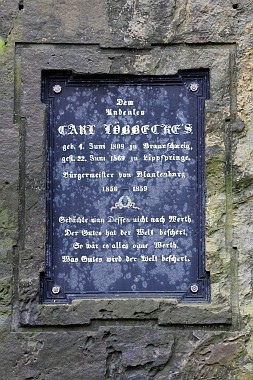 Dem
Andenken
CARL LÖBBECKE'S
geb. 4. Juni 1808 zu Braunschweig,
gest. 22. Juni 1869 zu Lippspringe.
Bürgermeister von Blankenburg
1850 1859
Gedächte man Dessen nicht nach Werth,
Der Gutes hat der Welt beschert,
So wär es alles ohne Werth,
Was Gutes wird der Welt beschert.